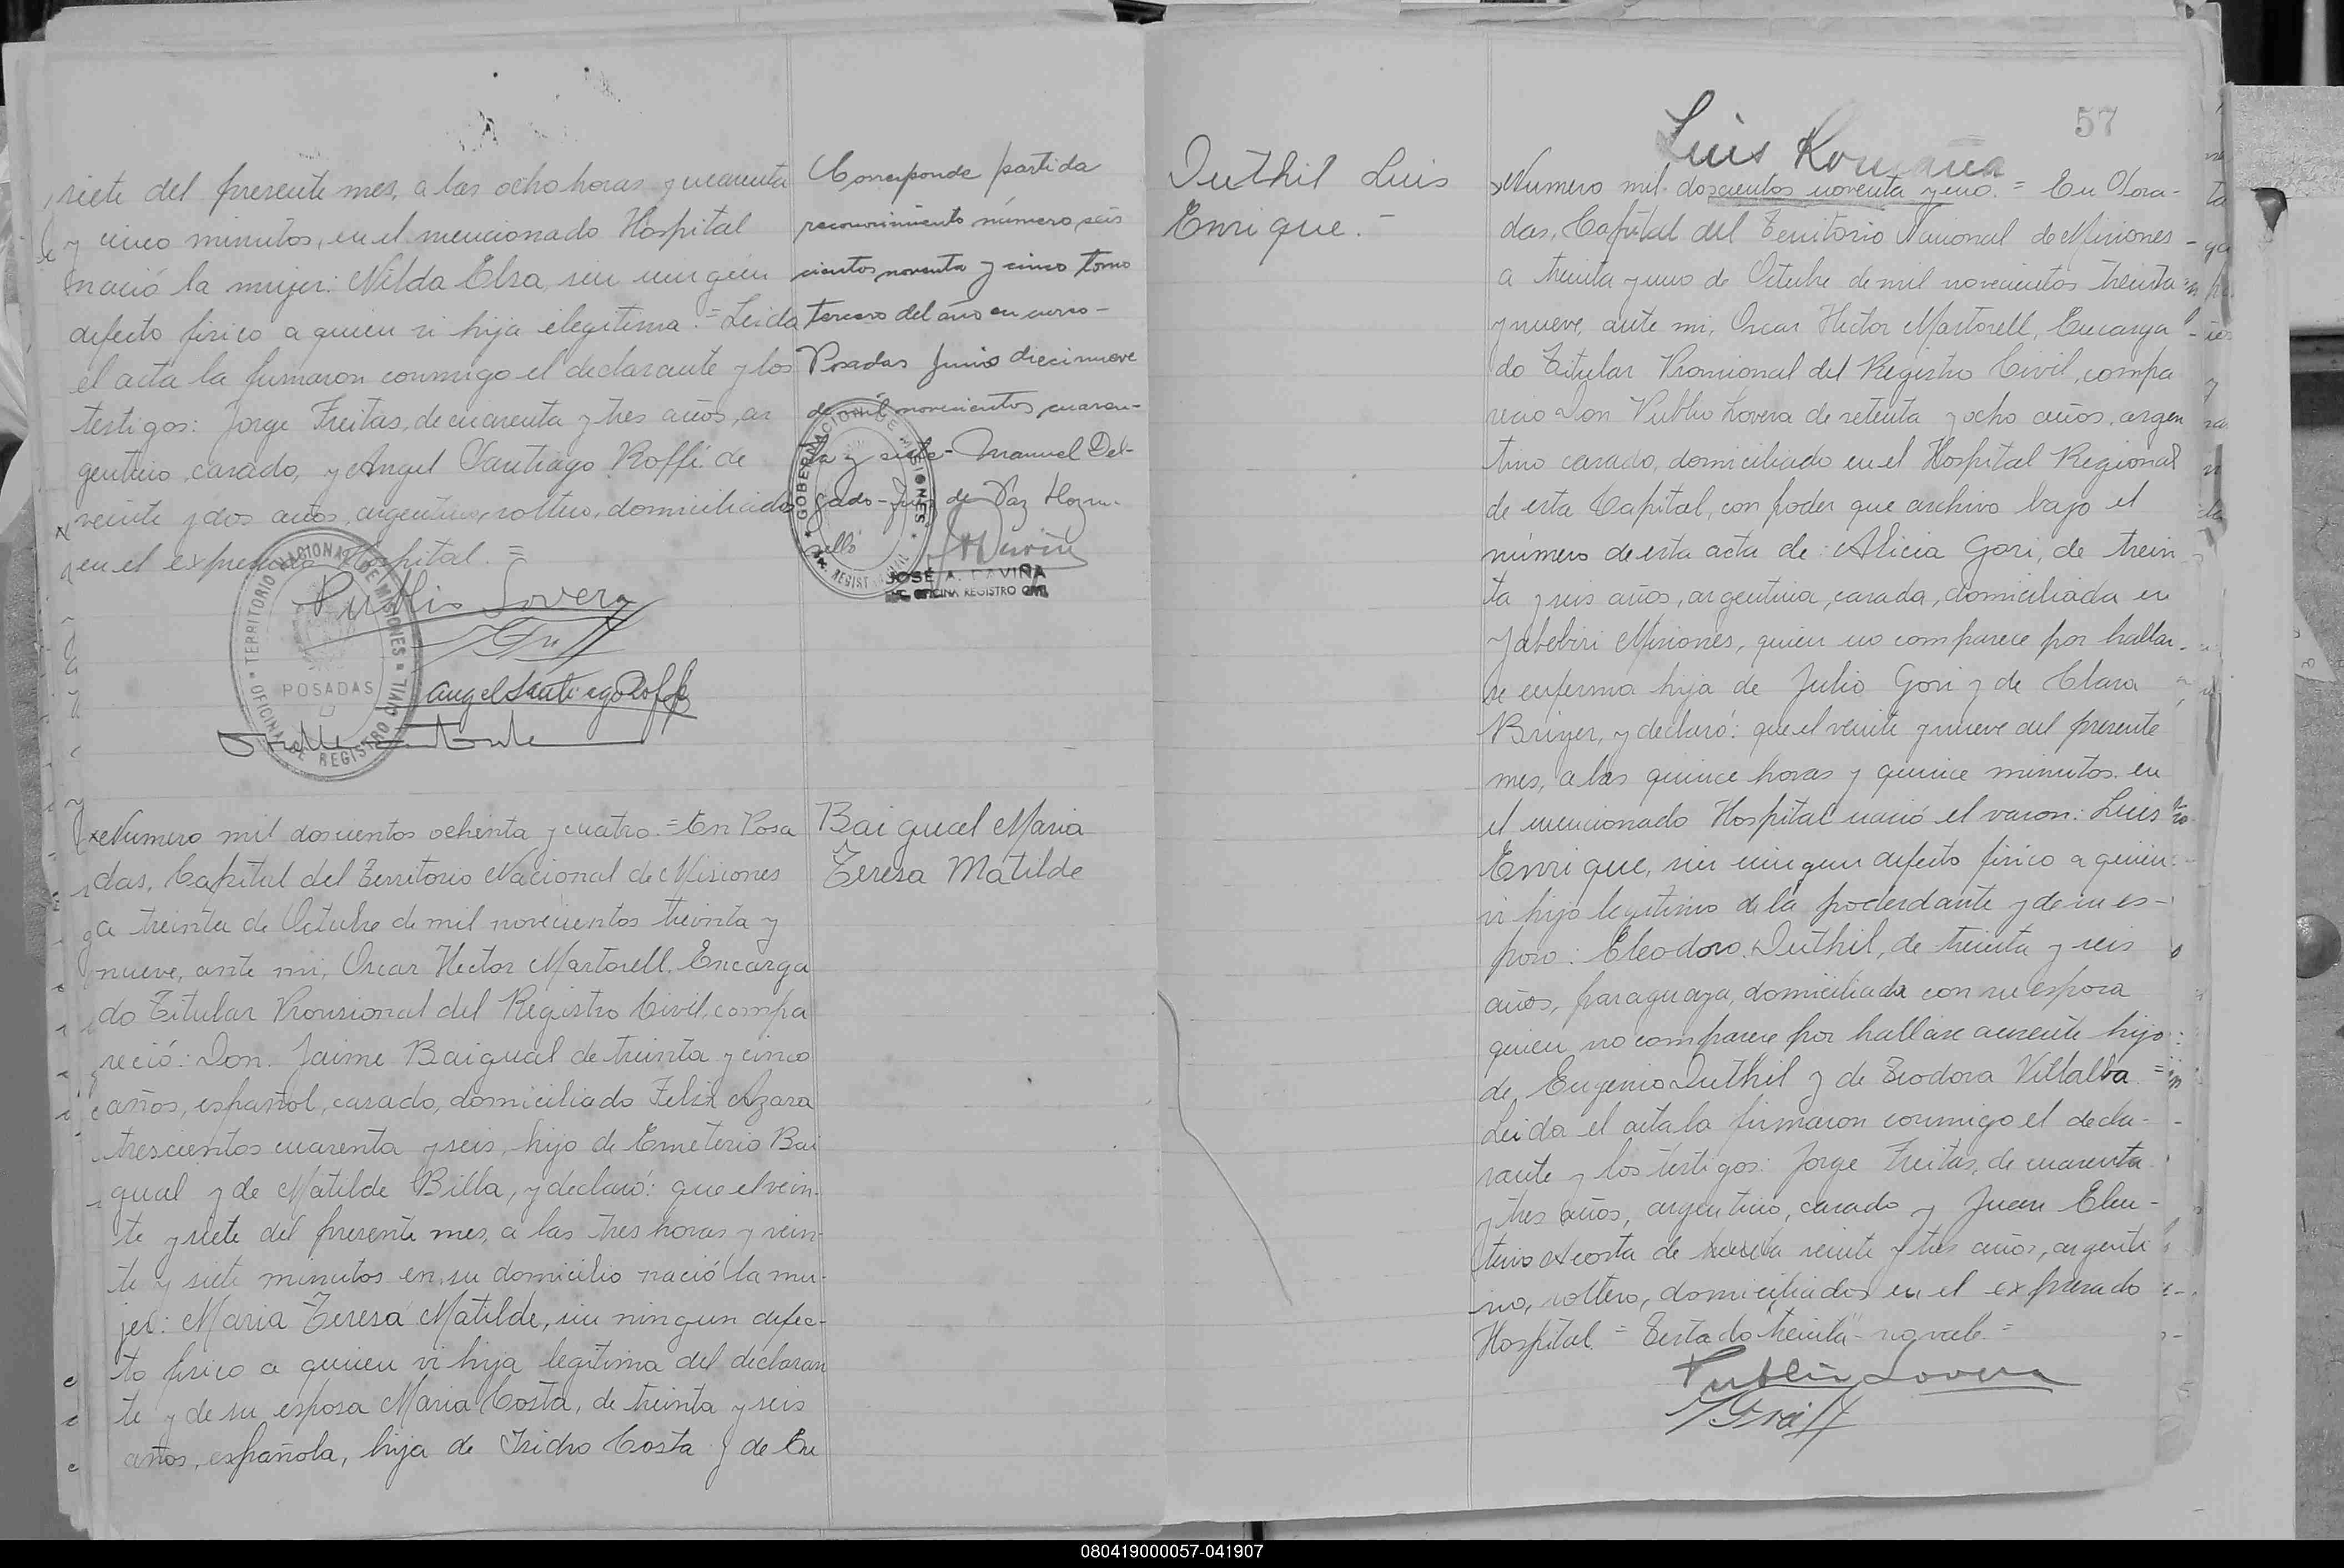 siete del presente mes, a las ocho horas y cuarenta
y cinco minutos, en el mencionado Hospital
nació la mujer: Nilda Elsa, sin ningún
defecto fisico a quien vi hija ilegitima. = Leida
el acta la firmaron conmigo el declarante y los
testigos: Jorge Freitas, de cuarenta y tres años, ar
gentino, casado, y Angel Santiago Roffé de
veinte y dos años, argentino, soltero, domiciliados
en el expresado Hospital. =
Publio Lovera
Angel Santiago Roffé
TERRITORIO NACIONAL DE MISIONES
OFICINA DE REGISTRO CIVIL
POSADAS
Corresponde partida
reconocimiento número seis
cientos noventa y cinco tomo
tercero del año en curso-
Posadas Junio diecinueve
de mil novecientos cuaren-
ta y siete- Manuel Del-
gado- Juez de Paz
GOBERNACION DE MISIONES
REGISTRO CIVIL
JOSÉ A. DAVIÑA
OFICINA REGISTRO CIVIL
Numero mil doscientos ochenta y cuatro = En Posa
das, Capital del Territorio Nacional de Misiones
a treinta de Octubre de mil novecientos treinta y
nueve, ante mi, Oscar Hector Martorell. Encarga
do Titular Provisional del Registro Civil, compa
reció: Don. Jaime Baigual de treinta y cinco
años, español, casado, domiciliado Felix Azara
trescientos cuarenta y seis, hijo de Emeterio Bai
gual y de Matilde Billa, y declaró: que el vein-
te y siete del presente mes, a las tres horas y vein-
te y siete minutos en su domicilio nació la mu-
jer: Maria Teresa Matilde, sin ningun defec-
to fisico a quien vi hija legitima del declaran
te y de su esposa Maria Costa, de treinta y seis
años, española, hija de Isidro Costa y de Eu
Baigual Maria
Teresa Matilde
57
Luis Romaña
Duthil Luis
Enrique.-
Numero mil doscientos noventa y uno. = En Posa-
das, Capital del Territorio Nacional de Misiones
a treinta y uno de Octubre de mil novecientos treinta
y nueve, ante mi, Oscar Hector Martorell, Encarga
do Titular Provisional del Registro Civil, compa
recio Don Publio Lovera de setenta y ocho años, argen
tino casado, domiciliado en el Hospital Regional
de esta Capital, con poder que archivo bajo el
número de esta acta de: Alicia Gori, de trein
ta y seis años, argentina, casada, domiciliada en
Yabebiri Misiones, quien no comparece por hallar-
se enferma hija de Julio Gori y de Clara
Briñer, y declaró: que el veinte y nueve del presente
mes, a las quince horas y quince minutos en
el mencionado Hospital nació el varon: Luis
Enrique, sin ningun defecto fisico a quien
vi hijo legitimo de la poderdante y de su es-
poso: Eleodoro Duthil, de treinta y seis
años, paraguayo, domiciliado con su esposa
quien no comparece por hallarse ausente hijo
de Eugenio Duthil y de Teodora Villalba =
Leida el acta la firmaron conmigo el decla-
rante y los testigos: Jorge Freitas, de cuarenta
y tres años, argentino, casado y Juan Eleu-
terio Acosta de treinta veinte y tres años, argenti
no, soltero, domiciliados en el expresado
Hospital. = Testado "treinta"- no vale =
Publio Lovera
080419000057-041907